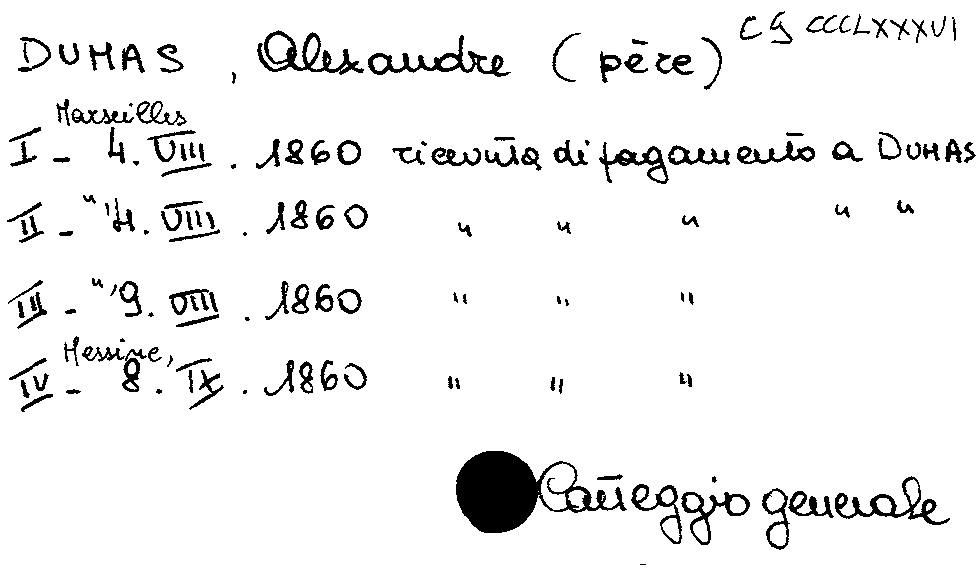 DUMAS, Alexandre (père) CG CCCLXXXVI
Marseilles
I - 4. VIII. 1860 ricevuta di pagamento a DUMAS
II - " 4. VIII. 1860 " " " " "
III - " 9. VIII. 1860 " " "
Messine,
IV - 8. IX. 1860 " " "
Carteggio generale